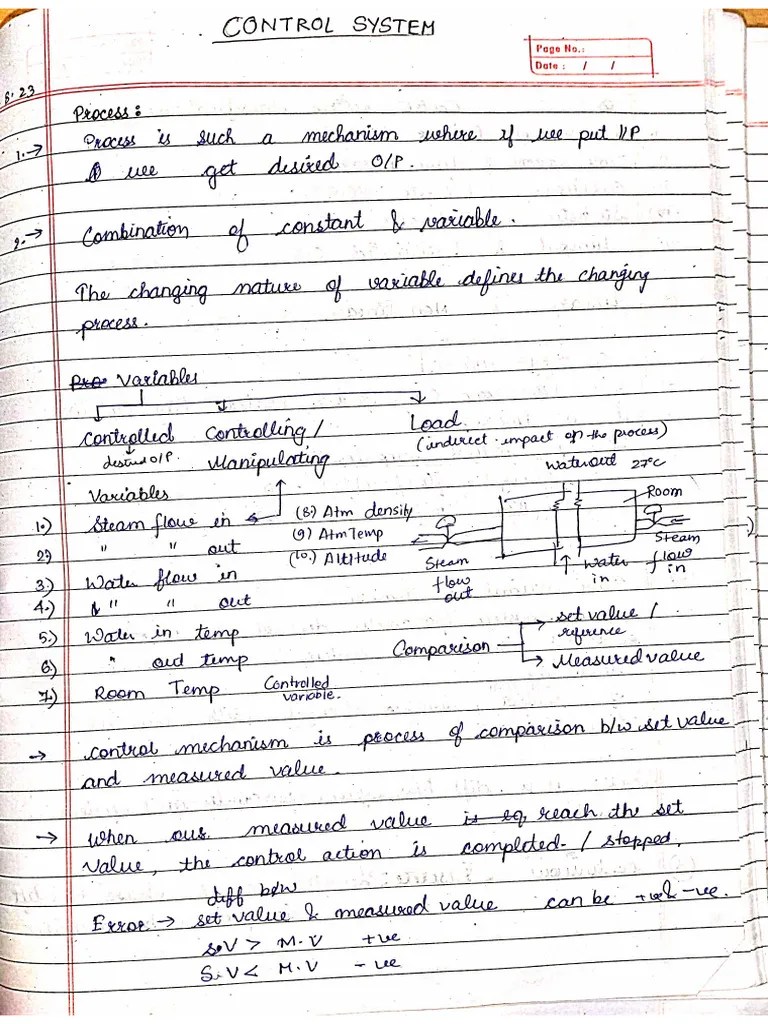 CONTROL SYSTEM
Page No.:
Date : / /
Process:
1.→ Process is such a mechanism where if we put I/P
we get desired O/P.
2.→ Combination of constant & variable.
The changing nature of variable defines the changing
process.
Pro Variables
Controlled Controlling / Load
desired O/P. Manipulating (indirect impact on the process)
Variables
Water out 27°c
Room
1.) Steam flow in (8.) Atm density
2) " " out (9.) Atm Temp
3) Water flow in (10.) Altitude
4.) " " out
Steam flow out
Water in
Steam flow in
5.) Water in temp
6) " out temp
7.) Room Temp Controlled variable.
Comparison
set value / reference
Measured value
→ control mechanism is process of comparison b/w set value
and measured value.
→ When our measured value is eq reach the set
value, the control action is completed / stopped.
diff b/w
Error → set value & measured value can be +ve & -ve.
S.V > M.V +ve
S.V < M.V -ve